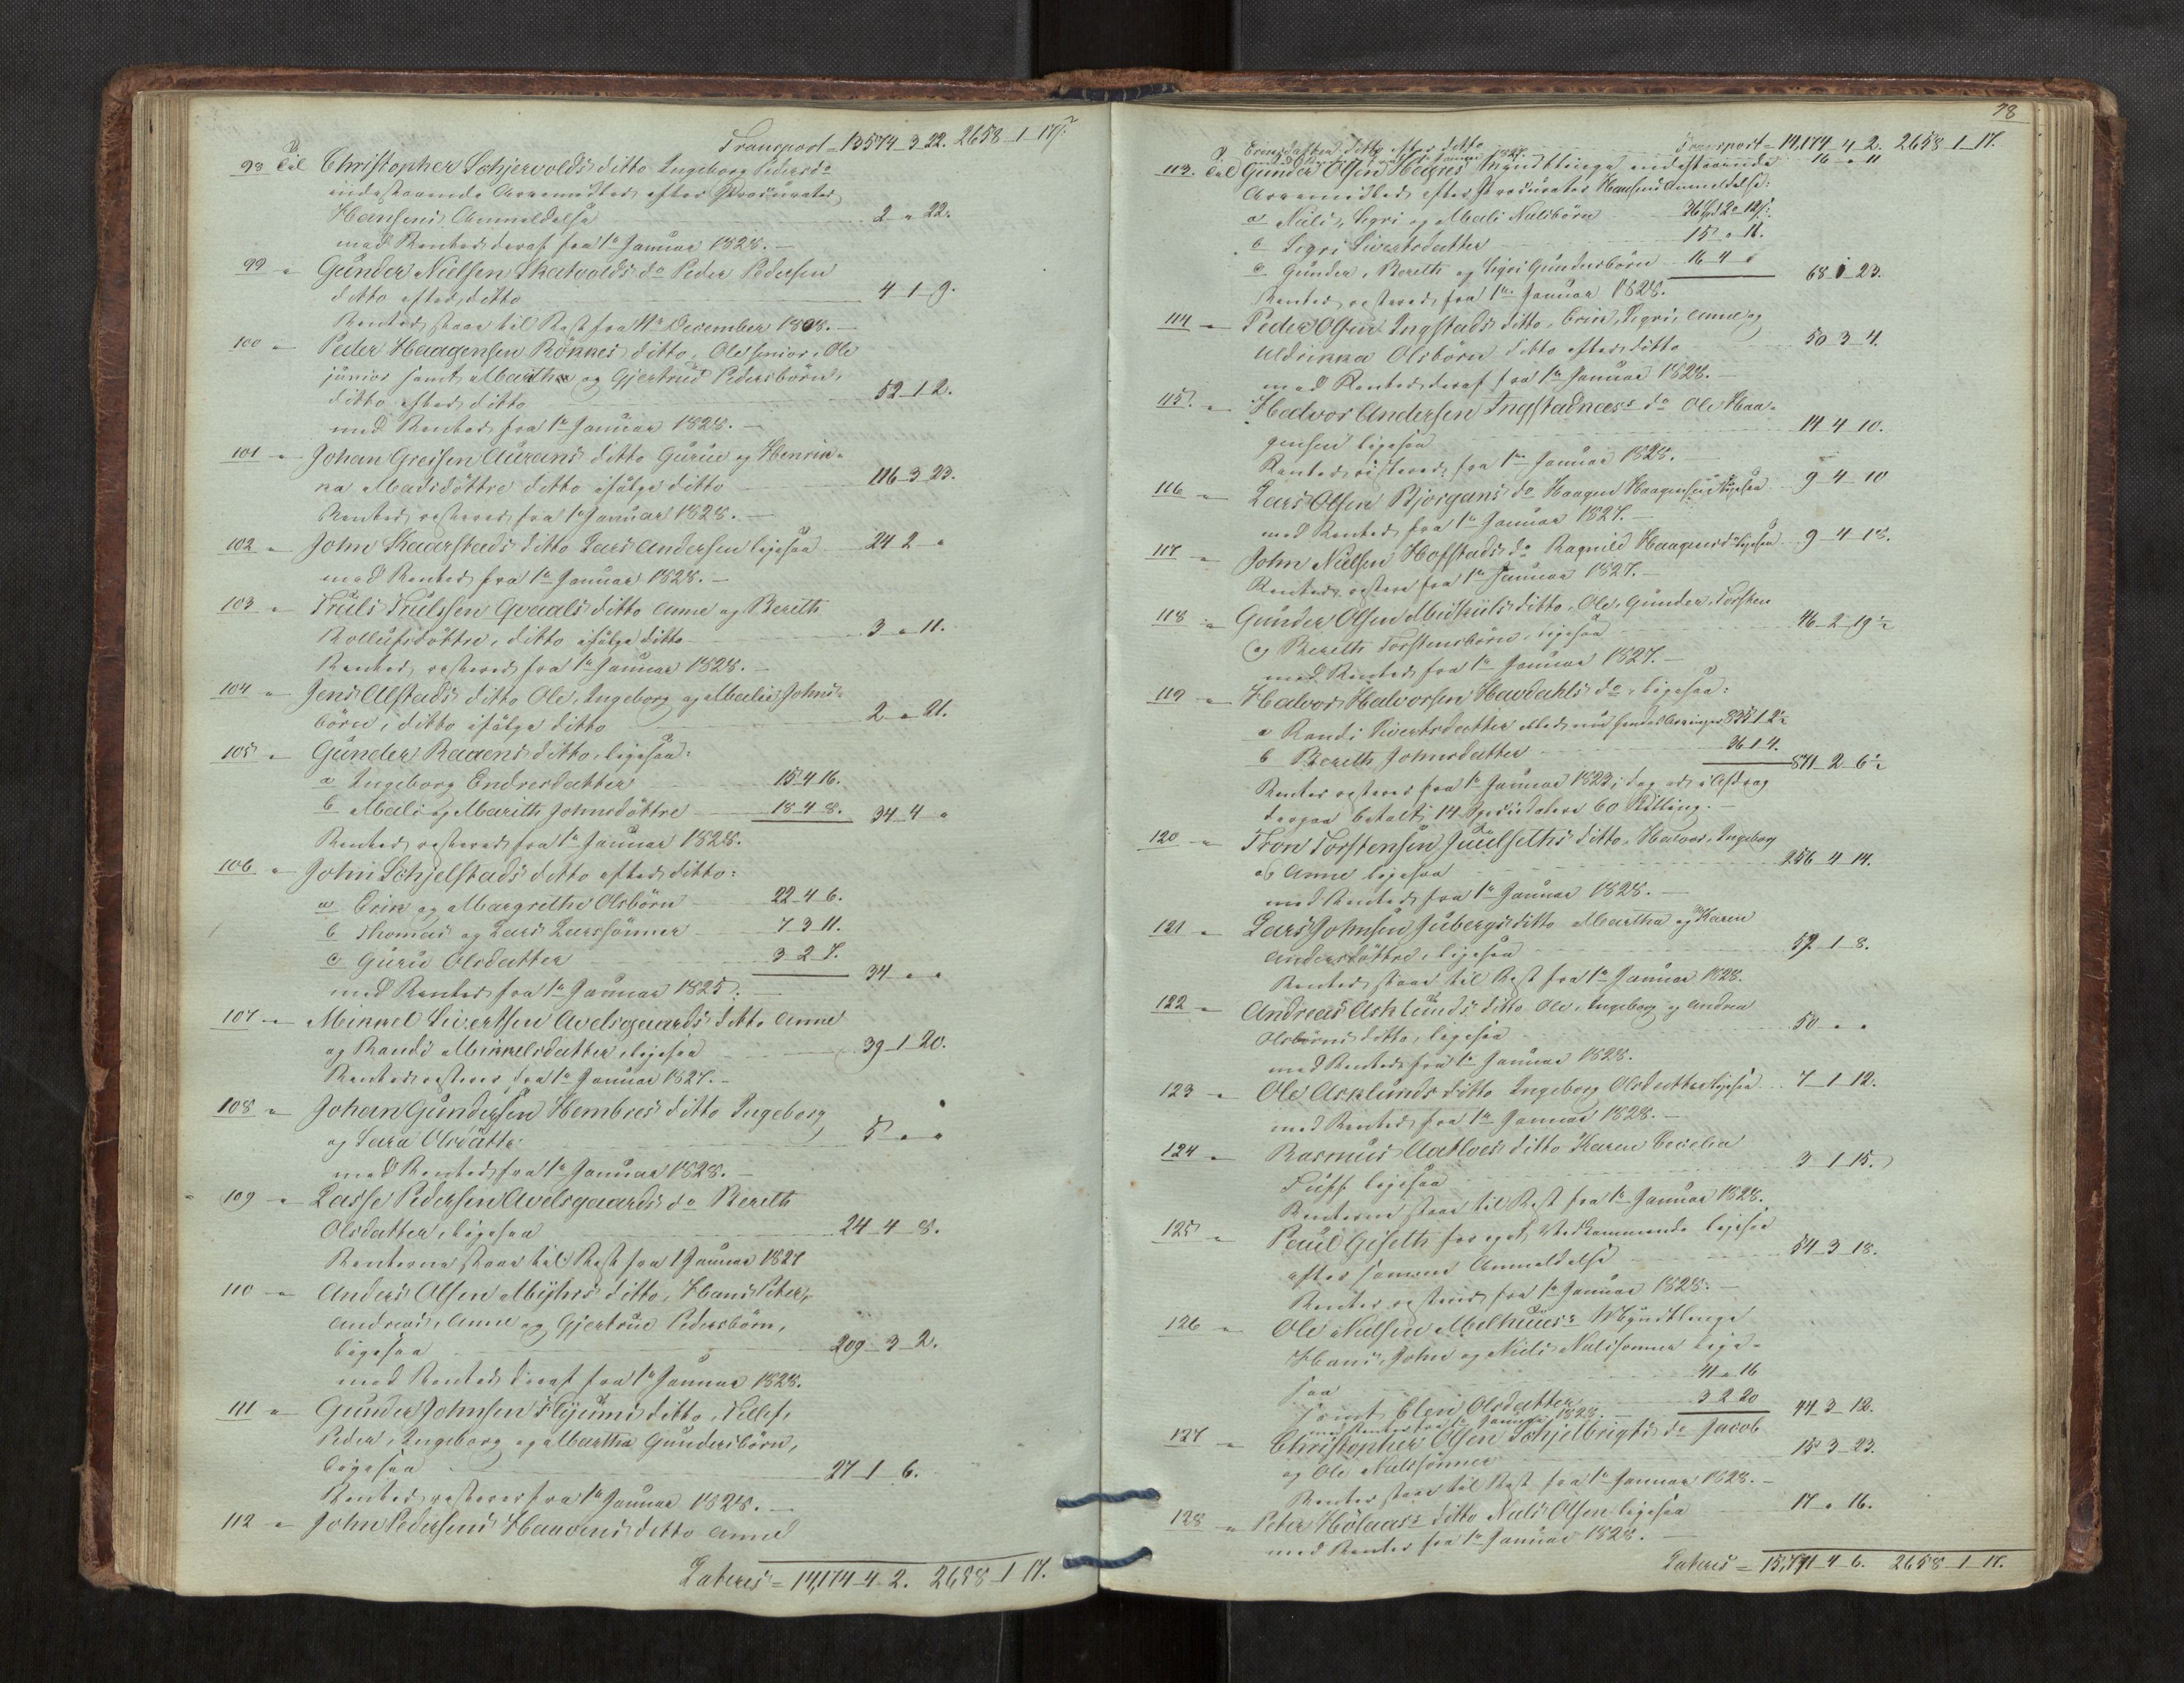 Transport = 13574 - 3 22. 2658 - 1 - 17 ß.
98 Til Christopher Schjervolds ditto Ingeborg Pedersd.
indestaaende Arvemidler efter Procurator
Hansens Anmeldelse 2 „ 22.
med Renter deraf fra 1te Januar 1828.
99 „ Gunder Nielsen Skatvolds do Peder Pedersen
ditto efter ditto 4 1 9.
Renter staae til Rest fra 11te December 1808.
100 „ Peder Haagensen Rökkes ditto, Ole senior, Ole
junior samt Martha og Gjertrud Pedersbörn,
ditto efter ditto 52 1 2.
med Renter fra 1te Januar 1828.
101 „ Johan Greisen Aurans ditto Guru og Henrik-
ka Madsdöttre ditto ifölge ditto 116 3 23.
Renter resterer fra 1te Januar 1828.
102 „ John Skaarstads ditto Lars Andersen ligesaa 24 2 „
med Renter fra 1te Januar 1828.
103 „ Truls Trulssen Qvaals ditto Anne og Bereth
Rollufsdöttre, ditto ifölge ditto 3 „ 11.
Renter resterer fra 1te Januar 1828.
104 „ Jens Alstads ditto Ole, Ingeborg og Mali Johns-
börn, ditto ifölge ditto 2 „ 21.
105 „ Gunder Raaens ditto, ligesaa:
a Ingeborg Endresdatter 15 4 16.
b Mali og Marith Johnsdöttre 18 4 8. 34 4 „
Renter resterer fra 1te Januar 1828.
106 „ John Schjelstads ditto efter ditto:
a Erik og Margrethe Olsbörn 22 4 6.
b Thomas og Lars Larssönner 7 3 11.
c Guru Olsdatter 3 2 7. 34 „ „
med Renter fra 1te Januar 1825.
107 „ Mikkel Sivertsen Avelsgaards ditto Anne
og Randi Mikkelsdatter, ligesaa 39 1 20.
Renter resterer fra 1te Januar 1827.
108 „ Johan Gundersen Hembres ditto Ingeborg
og Sara Olsdattr. 5 „ „
med Renter fra 1te Januar 1828.
109 „ Lasse Pedersen Avelsgaards do Bereth
Olsdatter, ligesaa 24 4 8.
Renterne staae til Rest fra 1 Januar 1827
110 „ Anders Olsen Myhrs ditto, Hans Peter,
Andreas, Anne og Gjertrud Pedersbörn,
ligesaa 209 3 2.
med Renter deraf fra 1te Januar 1828.
111 „ Gunder Johnsen Flyums ditto,
Peder, Ingeborg og Martha Gundersbörn,
ligesaa 27 1 6.
Renter resterer fra 1te Januar 1828.
112 „ John Pedersens Haavens ditto Anne
Lateris = 14,174 4 2. 2658 1 17.
78
Transport = 14,174 4 2. 2658 1 17.
Ericsdatter ditto efter ditto 16 „ 11
med Renter fra 1te Januar 1827.
113. Til Gunder Olsen Hegres Myndtlinge indestaaende
Arvemidler efter Procurator Hansens Anmeldelse:
a Niels, Sigri og Mali Nielsbörn 36 Spd 2 o 12 ß.
b Sigri Sivertsdatter 15 „ 11.
c Gunder, Bereth og Sigri Gundersbörn 16 4 „ 68 1 23.
Renter resterer fra 1te Januar 1828.
114 „ Peder Olsen Ingstads ditto, Erik, Sigri, Anne og
Uldrikka Olsbörn ditto efter ditto 50 3 4.
med Renter deraf fra 1te Januar 1828.
115. „ Halvor Andersen Ingstadnæss do Ole Haa-
gensen ligesaa 14 4 10.
Renter resterer fra 1te Januar 1828.
116 „ Lars Olsen Bjorgans do Haagen Haagensen ligesaa 9 4 10
med Renter fra 1te Januar 1827.
117 „ John Nielsen Hofstads do Ragnild Haagensd. ligesaa 9 4 18.
Renter resterer fra 1te Januar 1827.
118 „ Gunder Olsen Midtkils ditto, Ole, Gunder, Torsten
og Bereth Torstensbörn, ligesaa 46 2 19½
med Renter fra 1te Januar 1827.
119 „ Halvor Halvorsen Havdahls do, ligesaa:
a Randi Sivertsdatter eller nu hendes Arvinger 835 1 2½
b Bereth Johnsdatter 36 1 4. 871 2 6½
Renter resterer fra 1te Januar 1823; dog er i Afdrag
derpaa betalt 14 Speciedaler 60 Skilling.
120 „ Tron Torstensen Juulseths ditto, Halvor, Ingeborg
og Anne ligesaa 256 4 14.
med Renter fra 1te Januar 1828.
121 „ Lars Johnsen Jubergs ditto Martha og Karen
Andersdöttre, ligesaa 52 1 8.
Renter staae til Rest fra 1te Januar 1828.
122 „ Andreas Asklunds ditto Ole, Ingeborg og Andrea
Olsbörns ditto, ligesaa 50 „ „
med Renter fra 1te Januar 1828.
123 „ Ole Asklunds ditto Ingeborg Olsdatter ligesaa 7 1 12.
med Renter fra 1te Januar 1828.
124 „ Rasmus Aatloes ditto Karen Cecelia
ligesaa 3 1 15.
Renterne staae til Rest fra 1te Januar 1828.
125 „ Paul Giseth for eget Vedkommende ligesaa
efter samme Anmeldelse 54 3 18.
Renter resterer fra 1te Januar 1828.
126 „ Ole Nielsen Melhuus's Myndtlinge
Hans, John og Niels Nielssönner lige-
saa 41 „ 16
samt Elen Olsdatter 3 2 20 44 3 12.
med Renter fra 1te Januar 1828.
127 „ Christopher Olsen Schjelbrigts do Jacob
og Ole Nielssönner 15 3 23.
Renter staae til Rest fra 1te Januar 1828.
128 „ Peter Hölaas's ditto Niels Olsen ligesaa 17 „ 16.
med Renter fra 1te Januar 1828.
Lateris = 15,791 4 6. 2658 1 17.